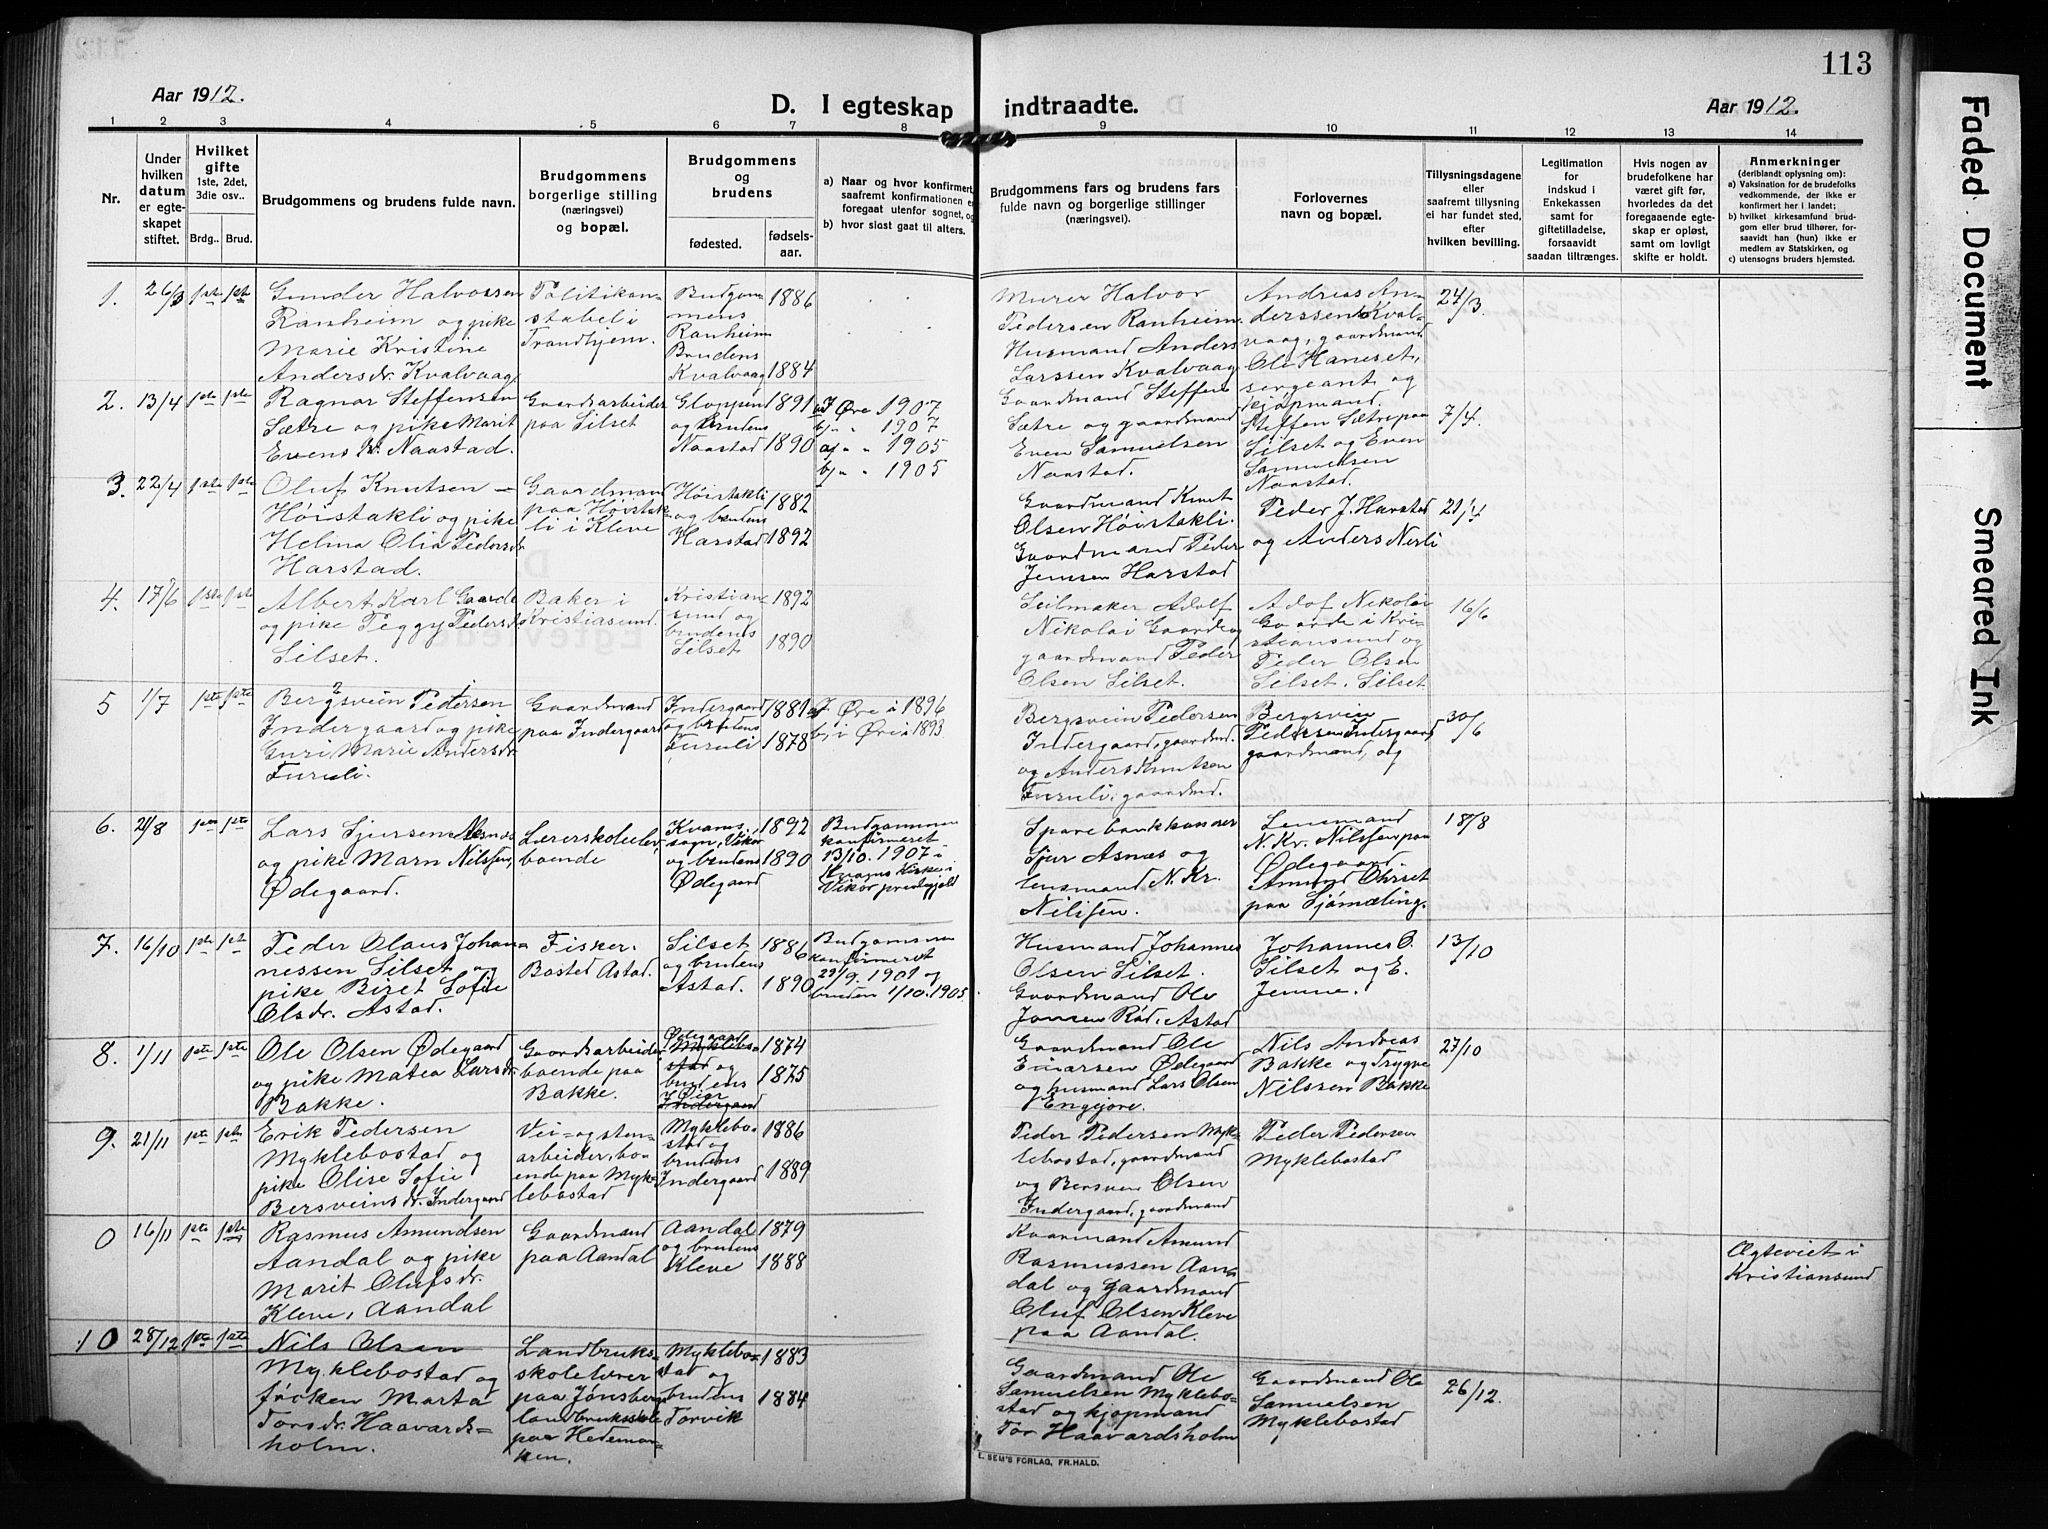 113
Aar 1912.
D. I egteskap indtraadte.
Aar 1912.
1 2 3 4 5 6 7 8 9 10 11 12 13 14
Nr.
Under hvilken datum er egteskapet stiftet.
Hvilket gifte 1ste, 2det, 3die osv..
Brdg.. Brud.
Brudgommens og brudens fulde navn.
Brudgommens borgerlige stilling (næringsvei) og bopæl.
Brudgommens og brudens
fødested.
fødselsaar.
a) Naar og hvor konfirmert, saafremt konfirmationen er foregaat utenfor sognet, og
b) hvor sidst gaat til alters.
Brudgommens fars og brudens fars fulde navn og borgerlige stillinger (næringsvei).
Forlovernes navn og bopæl.
Tillysningsdagene eller saafremt tillysning ei har fundet sted, efter hvilken bevilling.
Legitimation for indskud i Enkekassen samt for giftetilladelse, forsaavidt saadan tiltrænges.
Hvis nogen av brudefolkene har været gift før, hvorledes da det foregaaende egteskap er opløst, samt om lovlig skifte er holdt.
Anmerkninger (deriblandt oplysning om):
a) Vaksination for de brudefolks vedkommende, der ikke er konfirmert her i landet;
b) hvilket kirkesamfund brudgom eller brud tilhører, forsaavidt han (hun) ikke er medlem av Statskirken, og
c) utensogns bruders hjemsted.
1. 26/3 1ste 1ste
Gunder Halvorsen
Ranheim og pike
Marie Kristine
Andersdr. Kvalvaag.
Politikon-
stabel i
Trondhjem.
Budgom-
mens
Ranheim
Brudens
Kvalvaag
1886
1884
Murer Halvor
Pedersen Ranheim.
Husmand Anders
Larssen Kvalvaag
Andreas An-
derssen Kval-
vaag, gaardmand
Ole Hanset,
sergeant og
kjøpmand.
24/3.
2. 13/4 1ste 1ste
Ragnar Steffensen
Sætre og pike Marit
Evens dr. Naastad.
Gaardsarbeider
paa Silset
Gloppen
og brudens
Naastad
1891
1890
a) I Øre 1907
b) " " 1907
a) " " 1905
b) " " 1905
Gaardmand Steffen
Sætre og gaardmand
Even Samuelsen
Naastad.
Steffen Sætre paa
Silset og Even
Samuelsen
Naastad.
7/4.
3. 22/4 1ste 1ste
Oluf Knutsen
Høistakli og pike
Helina Olia Pedersdr.
Harstad.
Gaardmand
paa Høistak-
li i Kleve
Høistakli
og brudens
Harstad
1882
1892
Gaardmand Knut
Olsen Høistakli.
Gaardmand Peder
Jemsen Harstad
Peder J. Harstad
og Anders Nerli
21/4
4. 17/6 1ste 1ste
Albert Karl Gaarde
og pike Peggy Pedersdr.
Silset.
Baker i
Kristiasund.
Kristian-
sund og
brudens
Silset
1892
1890
Seilmaker Adolf
Nikolai Gaarde og
gaardmand Peder
Olsen Silset.
Adof Nikolai
Gaarde i Kri-
stiansund og
Peder Olsen
Silset. Silset
16/6
5 1/7 1ste 1ste
Bergsvein Pedersen
Indergaard og pike
Guri Marie Andersdr.
Furuli.
Gaardmand
paa Indergaard
Indergaard
og brudens
Furuli
1881
1878
a) I Øre i 1896
b) i Øre i 1893
Bergsvein Pedersen
Indergaard, gaardmd.
og Anders Knutsen
Furuli, gaardmd.
Bergsvein
Pedersen Indergaard
gaardmand, og
30/6
6. 21/8 1ste 1ste
Lars Sjursen Aasnæs
og pike Marn Nilssen,
Ødegaard.
Lærerskoleelev,
boende
Kvams
sogn, Vikør
og brudens
Ødegaard
1892
1890
Budgommen
konfirmeret
13/10. 1907 i
Kvams Kirke i
Vikør prestegjeld
Sparebankkasserer
Sjur Asnæs og
lensmand N. Kr.
Nilssen.
Lensmand
N. Kr. Nilssen paa
Ødegaard
Amund Ohrset
paa Sjømæling.
18/8
7. 16/10 1ste 1ste
Peder Olaus Johan-
nessen Silset og
pike Beret Sofie
Olsdr. Astad.
Fisker.
Bosted Astad.
Silset
og brudens
Astad.
1886
1890
Budgommen
konfirmeret
29/9. 1901 og
bruden 1/10. 1905.
Husmand Johannes
Olsen Silset.
Gaardmand Ole
Jonsen Rød, Astad
Johannes O.
Silset og E.
Jemne.
13/10
8. 1/11 1ste 1ste
Ole Olsen Ødegaard
og pike Matea Larsdr.
Bakke.
Gaardsarbeider
boende paa
Bakke.
Ødegaard
Myklebo-
stad og
brudens
Øier
Indergaard
1874
1875
Gaardmand Ole
Einarsen Ødegaard
og husmand Lars Olsen
Engejøre.
Nils Andreas
Bakke og Trygve
Nilssen Bakke
27/10
9. 21/11 1ste 1ste
Erik Pedersen
Myklebostad og
pike Olise Sofie
Bersveins dr. Indergaard
Vei- og sten-
arbeider, bo-
ende paa Myk-
lebostad
Myklebo-
stad og
brudens
Indergaard
1886
1889
Peder Pedersen Myk-
lebostad, gaardmand
og Bersven Olsen
Indergaard, gaardmand
Peder Pedersen
Myklebostad
0 16/11 1ste 1ste
Rasmus Amundsen
Aandal og pike
Marit Olufsdr.
Kleve, Aandal
Gaardmand
paa Aandal
Aandal
og brudens
Kleve
1879
1888
Kaarmand Amund
Rasmussen Aan-
dal og gaardmand
Oluf Olsen Kleve
paa Aandal.
Ægteviet i
Kristiansund
10 28/12 1ste 1ste
Nils Olsen
Myklebostad og
frøken Marta
Torsdr. Haavards-
holm.
Landbruks-
skolelærer
paa Jønsberg
landbruksskole
paa Hedemar-
ken.
Myklebo-
stad og
brudens
Torvik
1883
1884
Gaardmand Ole
Samuelsen Myklebo-
stad og kjøpmand
Tor Haavardsholm
Gaardmand Ole
Samuelsen
Myklebostad
26/12.
E. SEM'S FORLAG, FR.HALD.
Faded Document
Smeared Ink